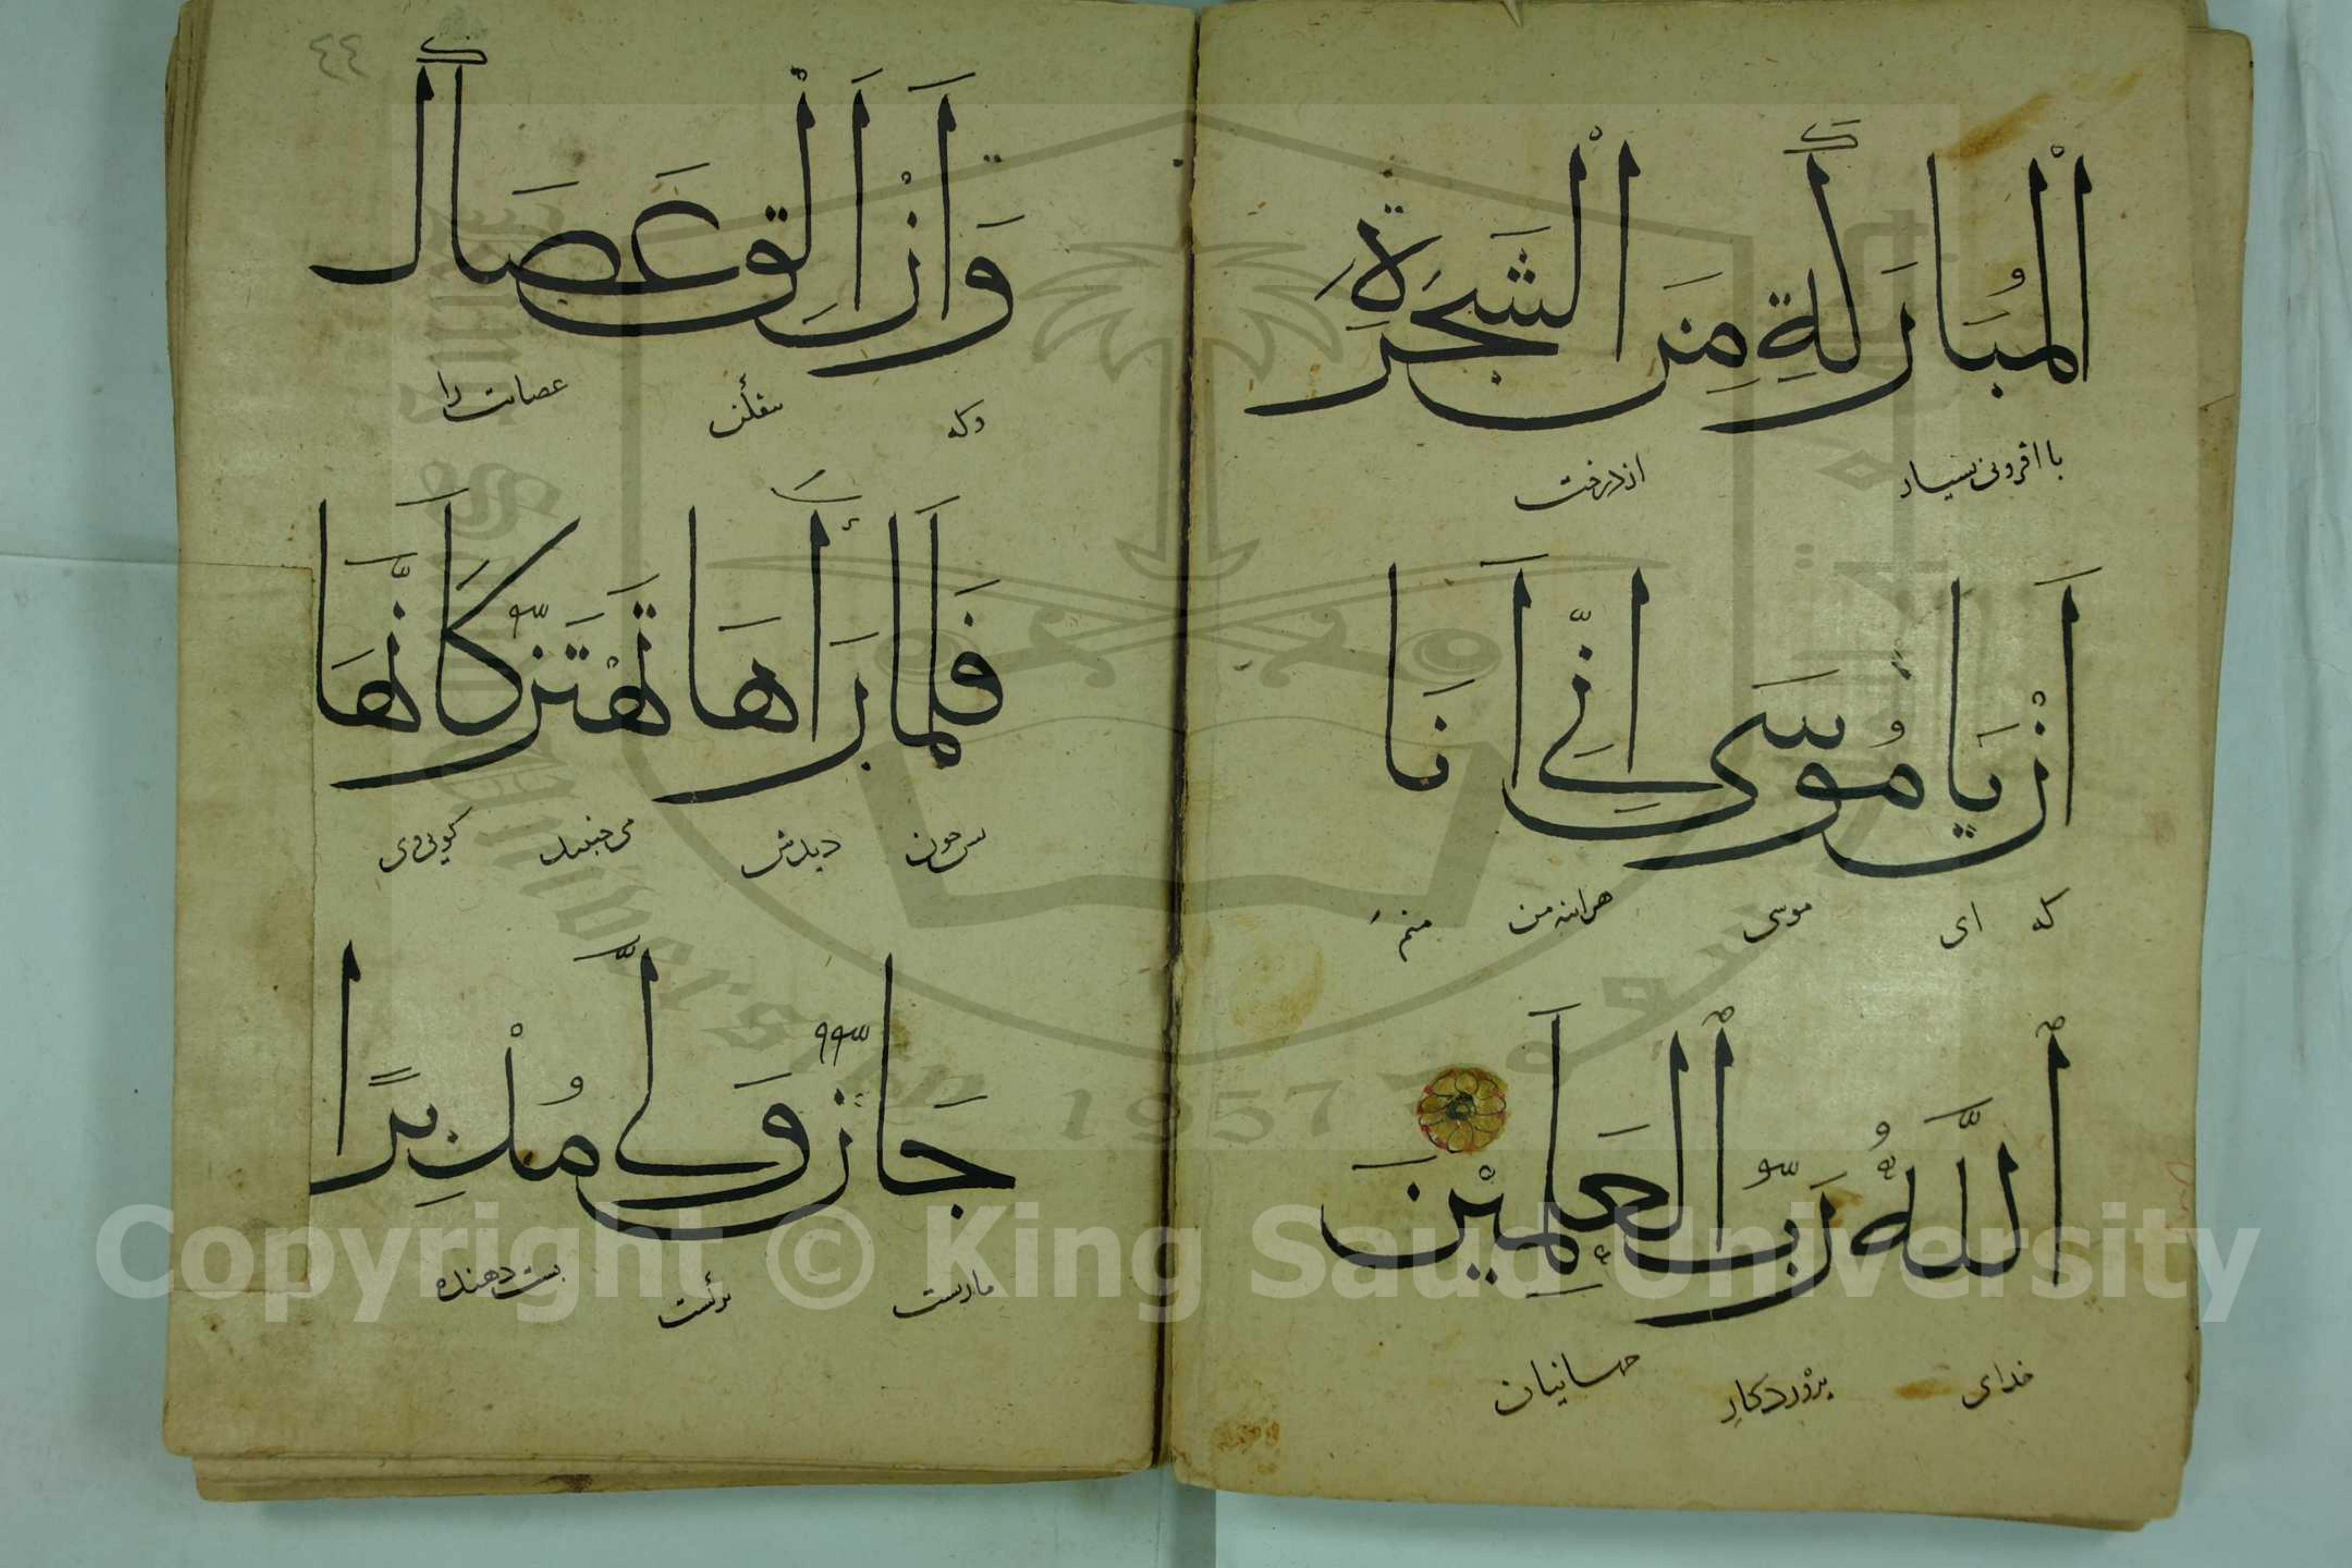 ٱلْمُبَارَكَةِ مِنَ ٱلشَّجَرَةِ
با افزونی بسیار از درخت
أَنْ يَا مُوسَى إِنِّي أَنَا
که ای موسی هراینه من منم
ٱللَّهُ رَبُّ ٱلْعَالَمِيْنَ
خدای پروردکار جهانیان
٤٤
وَأَنْ أَلْقِ عَصَاكَ
وکه بیفکن عصات را
فَلَمَّا رَآهَا تَهْتَزُّ كَأَنَّهَا
پس چون دیدش می جنبید کویی وی
جَانٌّ وَلَّى مُدْبِرًا
مارست برکشت پشت دهنده
King Saud University
1957
Copyright © King Saud University